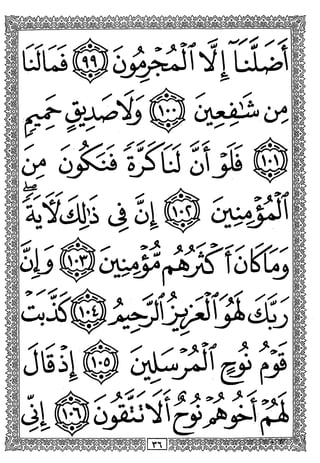 أَضَلَّنَآ إِلَّا ٱلْمُجْرِمُونَ ٩٩ فَمَا لَنَا
مِن شَٰفِعِينَ ١٠٠ وَلَا صَدِيقٍ حَمِيمٍ
١٠١ فَلَوْ أَنَّ لَنَا كَرَّةً فَنَكُونَ مِنَ
ٱلْمُؤْمِنِينَ ١٠٢ إِنَّ فِى ذَٰلِكَ لَأٓيَةً ۖ
وَمَا كَانَ أَكْثَرُهُم مُّؤْمِنِينَ ١٠٣ وَإِنَّ
رَبَّكَ لَهُوَ ٱلْعَزِيزُ ٱلرَّحِيمُ ١٠٤ كَذَّبَتْ
قَوْمُ نُوحٍ ٱلْمُرْسَلِينَ ١٠٥ إِذْ قَالَ
لَهُمْ أَخُوهُمْ نُوحٌ أَلَا تَتَّقُونَ ١٠٦ إِنِّى
٣٦